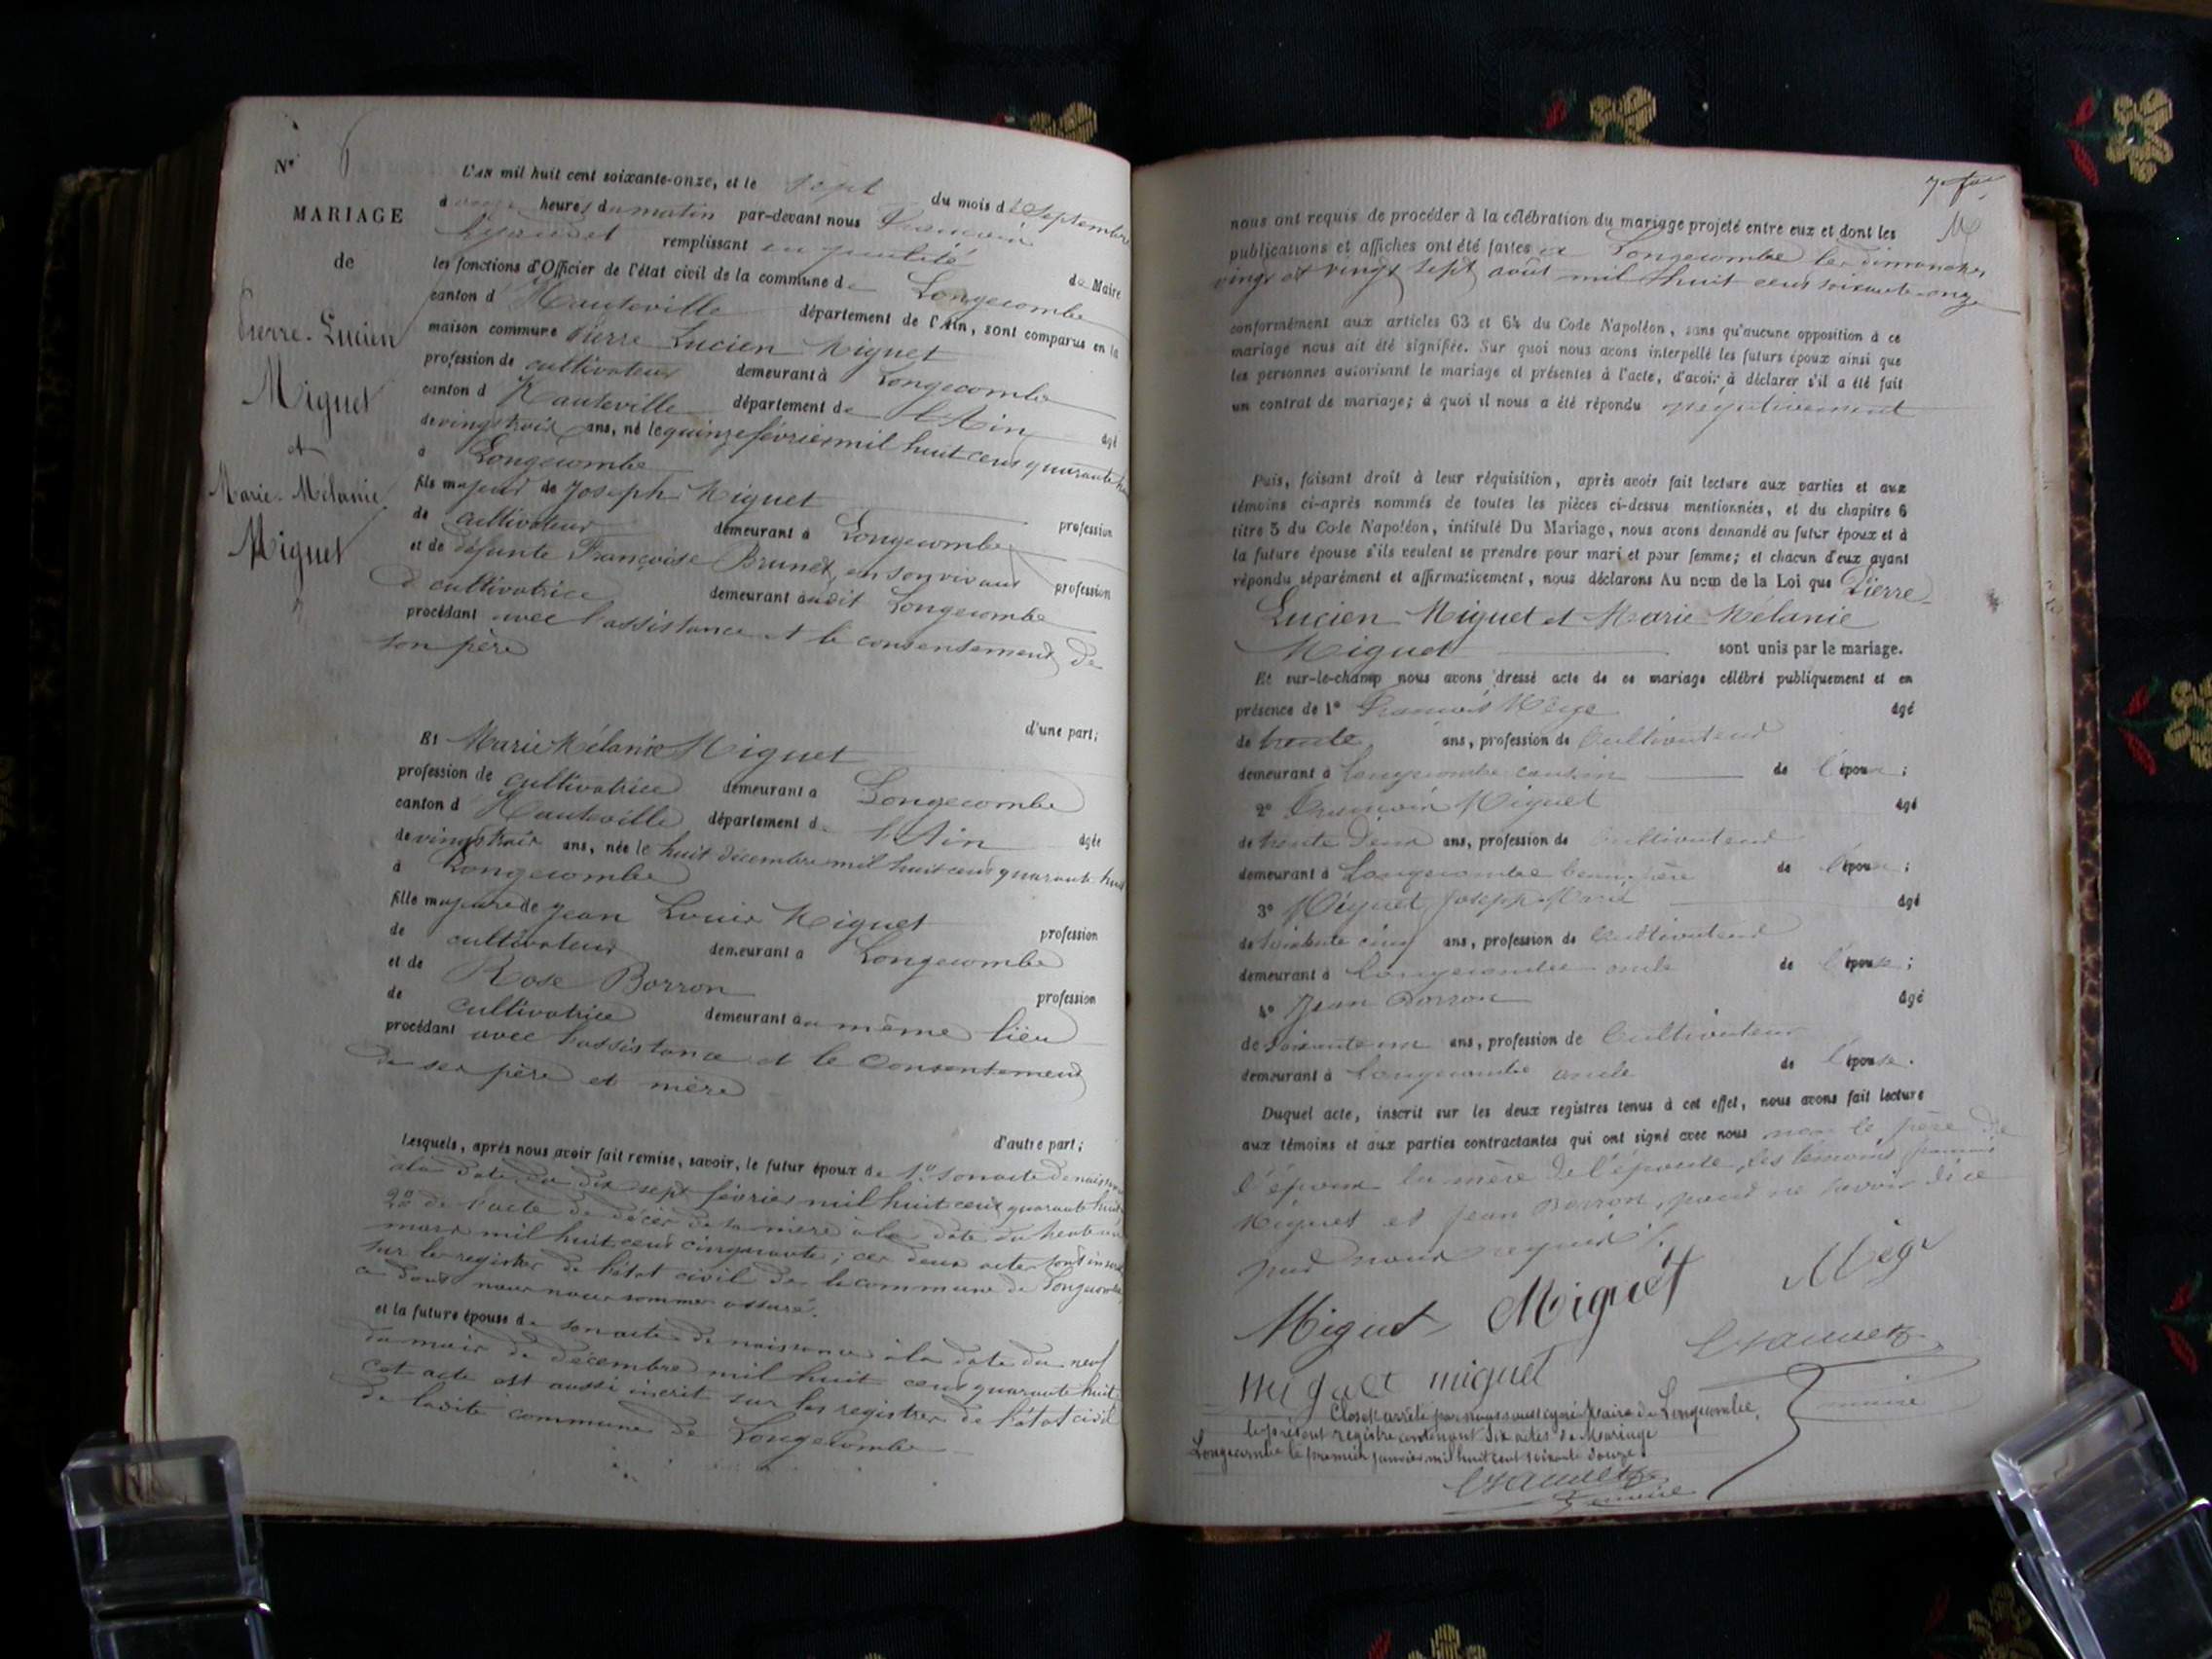 N° 6
MARIAGE
de
Pierre-Lucien
Miguet
et
Marie-Mélanie
Miguet
L'AN mil huit cent soixante-onze, et le sept du mois de Septembre
à heures du matin par-devant nous François
remplissant en qualité de Maire
les fonctions d'Officier de l'état civil de la commune de Longecombe
canton d'Hauteville département de l'Ain, sont comparus en la
maison commune Pierre Lucien Miguet
profession de cultivateur demeurant à Longecombe
canton d'Hauteville département de l'Ain âgé
de vingt trois ans, né le quinze février mil huit cent quarante huit
à Longecombe
fils majeur de Joseph Miguet profession
de cultivateur demeurant à Longecombe
et de défunte Françoise Brunet, en son vivant profession
de cultivatrice demeurant audit Longecombe
procédant avec l'assistance et le consentement de
son père
d'une part;
Et Marie Mélanie Miguet
profession de cultivatrice demeurant à Longecombe
canton d'Hauteville département de l'Ain âgée
de vingt trois ans, née le huit décembre mil huit cent quarante huit
à Longecombe
fille majeure de Jean Louis Miguet profession
de cultivateur demeurant à Longecombe
et de Rose Borron profession
de cultivatrice demeurant au même lieu
procédant avec l'assistance et le consentement
de ses père et mère
d'autre part;
Lesquels, après nous avoir fait remise, savoir, le futur époux de 1° son acte de naissance
à la date du dix sept février mil huit cent quarante huit
2° de l'acte de décès de sa mère à la date du trente un
mars mil huit cent cinquante; ces deux actes sont inscrits
sur les registres de l'état civil de la commune de Longecombe
ce dont nous nous sommes assuré.
et la future épouse de son acte de naissance à la date du neuf
du mois de décembre mil huit cent quarante huit
cet acte est aussi inscrit sur les registres de l'état civil
de ladite commune de Longecombe
nous ont requis de procéder à la célébration du mariage projeté entre eux et dont les
publications et affiches ont été faites à Longecombe les dimanches
vingt et vingt sept août mil huit cent soixante onze
conformément aux articles 63 et 64 du Code Napoléon, sans qu'aucune opposition à ce
mariage nous ait été signifiée. Sur quoi nous avons interpellé les futurs époux ainsi que
les personnes autorisant le mariage et présentes à l'acte, d'avoir à déclarer s'il a été fait
un contrat de mariage; à quoi il nous a été répondu négativement
Puis, faisant droit à leur réquisition, après avoir fait lecture aux parties et aux
témoins ci-après nommés de toutes les pièces ci-dessus mentionnées, et du chapitre 6
titre 5 du Code Napoléon, intitulé Du Mariage, nous avons demandé au futur époux et à
la future épouse s'ils veulent se prendre pour mari et pour femme; et chacun d'eux ayant
répondu séparément et affirmativement, nous déclarons Au nom de la Loi que Pierre
Lucien Miguet et Marie Mélanie
Miguet sont unis par le mariage.
Et sur-le-champ nous avons dressé acte de ce mariage célébré publiquement et en
présence de 1° François âgé
de trente ans, profession de Cultivateur
demeurant à Longecombe cousin de l'époux;
2° François Miguet âgé
de trente deux ans, profession de Cultivateur
demeurant à Longecombe beau frère de l'époux;
3° Miguet Joseph Marie âgé
de soixante cinq ans, profession de Cultivateur
demeurant à Longecombe oncle de l'épouse;
4° Jean Borron âgé
de soixante un ans, profession de Cultivateur
demeurant à Longecombe oncle de l'épouse.
Duquel acte, inscrit sur les deux registres tenus à cet effet, nous avons fait lecture
aux témoins et aux parties contractantes qui ont signé avec nous non le père de
l'époux la mère de l'épouse, les témoins
Miguet et Jean Borron, pour ne savoir de ce
par nous requis
Miguet Miguet
miguet miguet
Maire
Clos et arrêté par nous soussigné Maire de Longecombe,
le présent registre contenant six actes de Mariage
Longecombe le premier janvier mil huit cent soixante douze
Maire